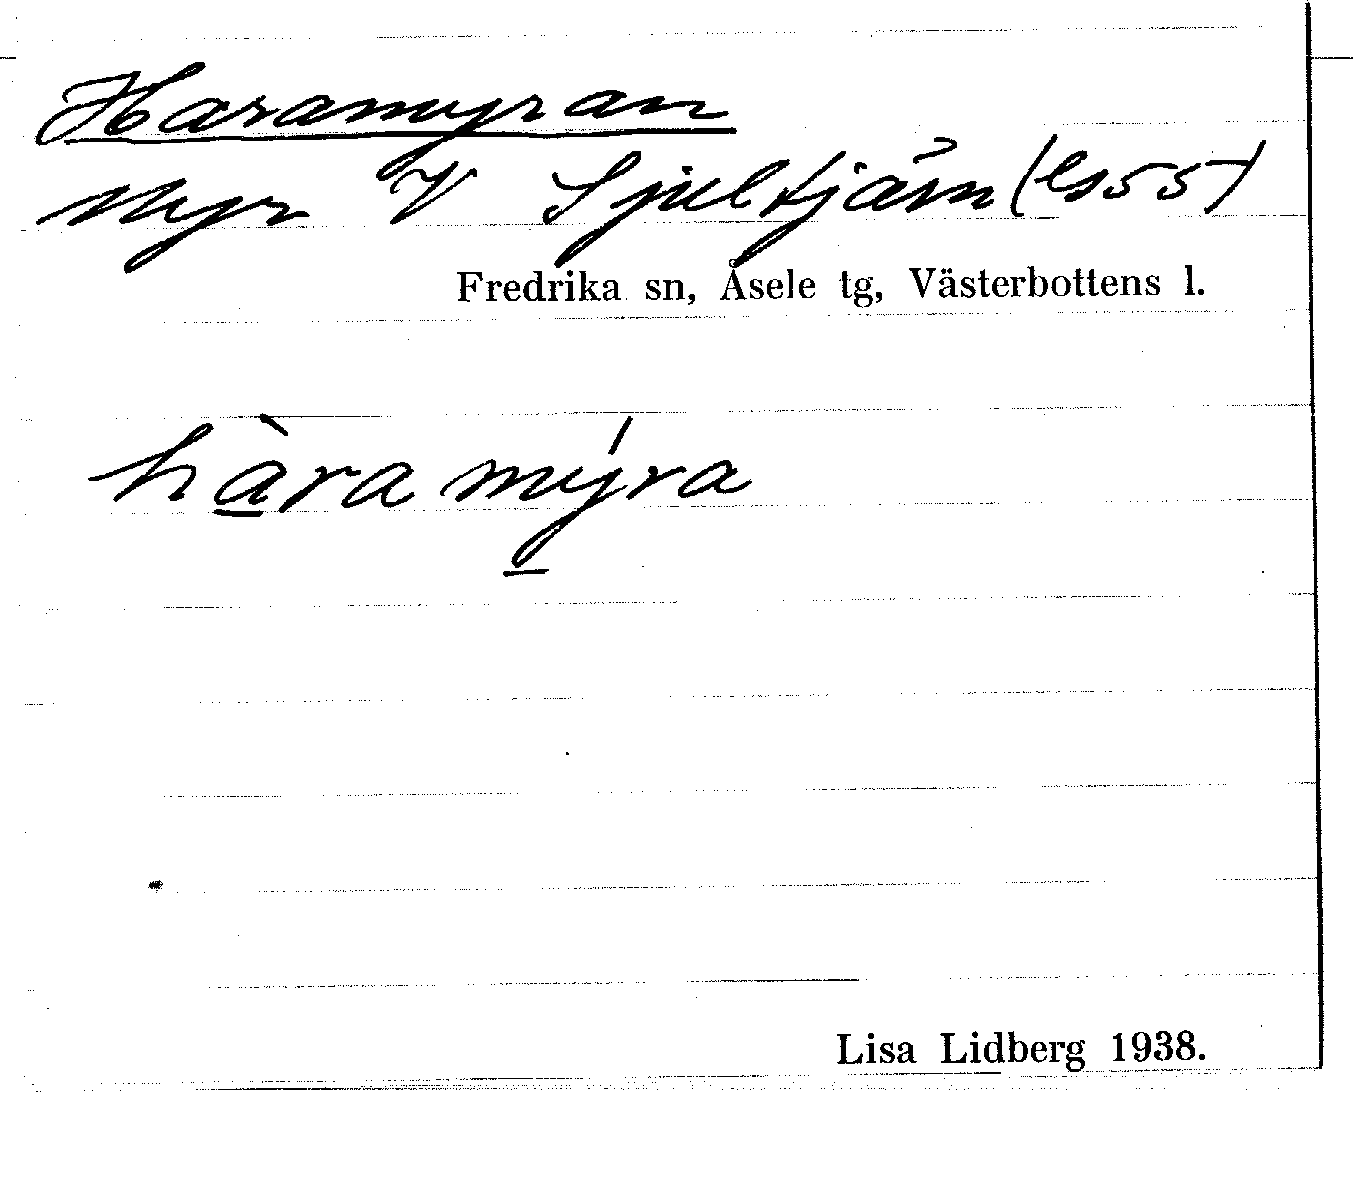 Haramyran
Myr V Sjultjärn (Es55)
Fredrika sn, Åsele tg, Västerbottens l.
hàra mýra
Lisa Lidberg 1938.